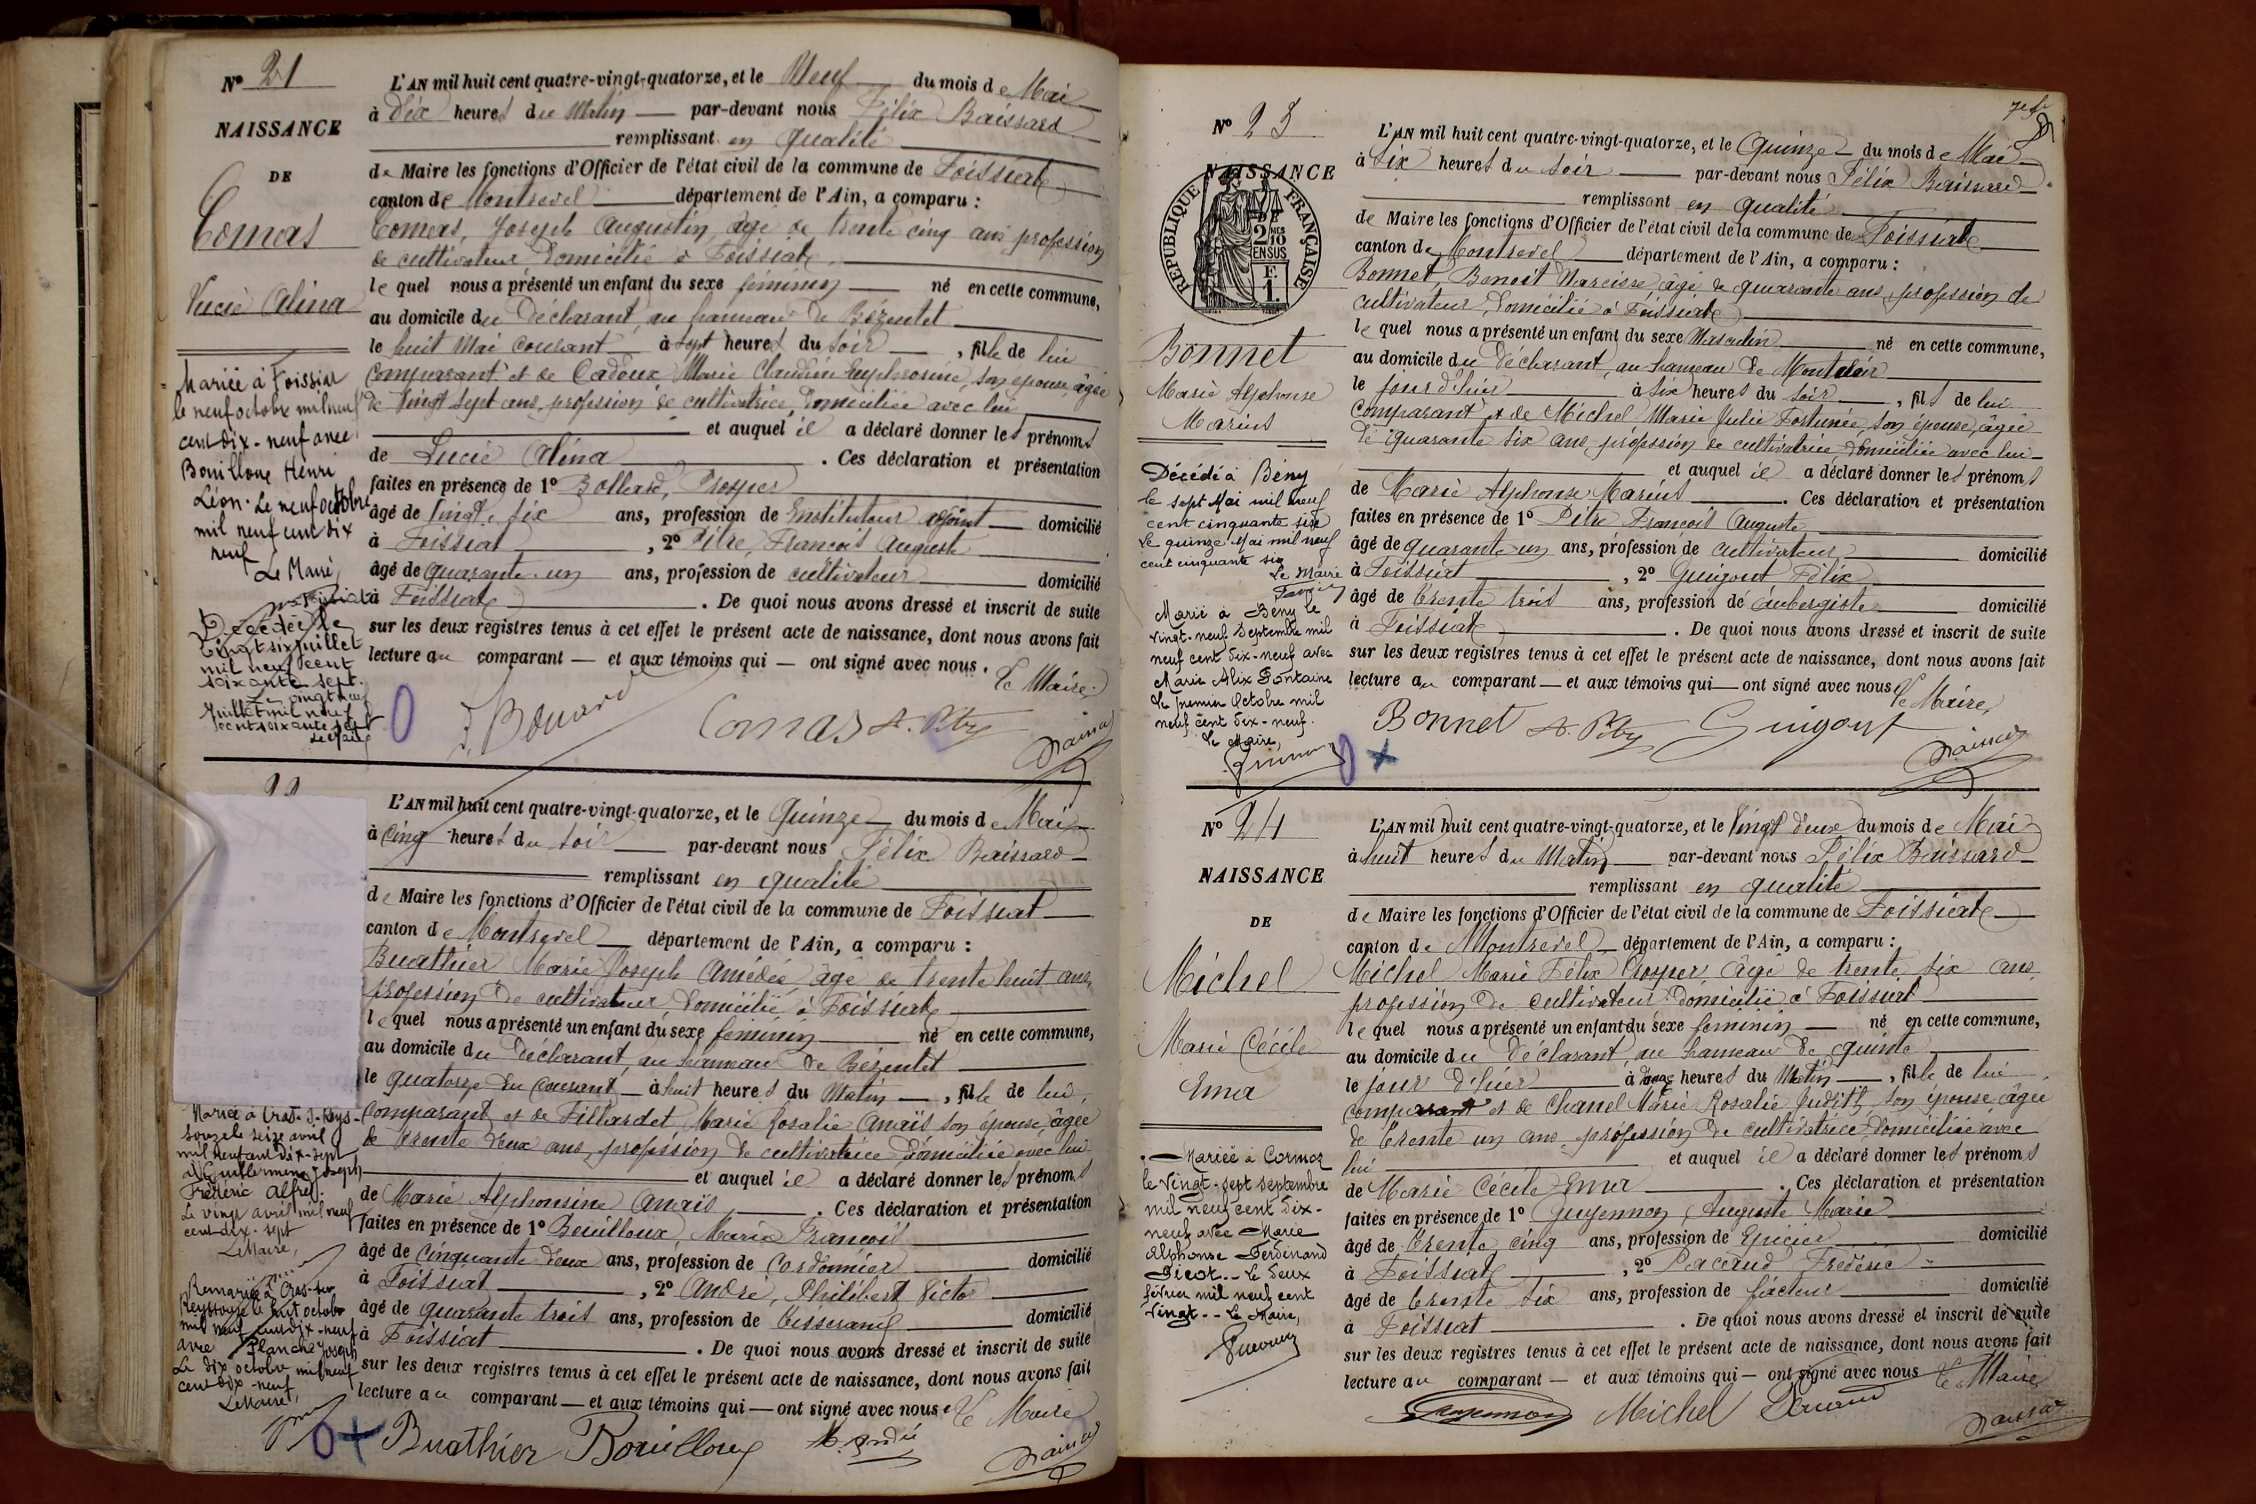 Nº 21
NAISSANCE
DE
Comas
Lucie Alina
Mariée à Foissiat
le neuf octobre mil neuf
cent dix-neuf avec
Bouilloux Henri
Léon. Le neuf octobre
mil neuf cent dix
neuf
Le Maire,
Décédée le
vingt six juillet
mil neuf cent
soixante sept.
Le vingt neuf
Juillet mil neuf
cent soixante sept
Le Maire
L'AN mil huit cent quatre-vingt-quatorze, et le Neuf du mois de Mai
à Dix heures du Matin — par-devant nous Félix Baissard
remplissant en qualité
de Maire les fonctions d'Officier de l'état civil de la commune de Foissiat
canton de Montrevel département de l'Ain, a comparu :
Comas, Joseph Augustin, âgé de trente cinq ans profession
de cultivateur domicilié à Foissiat
lequel nous a présenté un enfant du sexe féminin — né en cette commune,
au domicile du Déclarant, au hameau de Bézentet
le huit Mai courant à sept heures du soir —, fille de lui
comparant et de Cadoux Marie Claudine Euphrosine, son épouse, âgée
de Vingt sept ans, profession de cultivatrice, domiciliée avec lui
et auquel il a déclaré donner les prénoms
de Lucie Alina . Ces déclaration et présentation
faites en présence de 1º Prosper
âgé de Vingt six ans, profession de Instituteur adjoint — domicilié
à Foissiat , 2º Pitre, François Auguste
âgé de quarante un ans, profession de cultivateur domicilié
à Foissiat . De quoi nous avons dressé et inscrit de suite
sur les deux registres tenus à cet effet le présent acte de naissance, dont nous avons fait
lecture au comparant — et aux témoins qui — ont signé avec nous.
Le Maire
Comas
Baissard
L'AN mil huit cent quatre-vingt-quatorze, et le Quinze du mois de Mai
à Cinq heures du soir — par-devant nous Félix Baissard
remplissant en qualité
de Maire les fonctions d'Officier de l'état civil de la commune de Foissiat
canton de Montrevel département de l'Ain, a comparu :
Buathier Marie Joseph Amédée, âgé de trente huit ans,
profession de cultivateur domicilié à Foissiat
lequel nous a présenté un enfant du sexe féminin né en cette commune,
au domicile du Déclarant, au hameau de Bézentet
le quatorze du courant à huit heures du Matin —, fille de lui,
comparant et de Fillardet Marie Rosalie Anaïs son épouse, âgée
de trente deux ans, profession de cultivatrice domiciliée avec lui
et auquel il a déclaré donner les prénoms
de Marie Alphonsine Anaïs . Ces déclaration et présentation
faites en présence de 1º Bouilloux, Marie François
âgé de Cinquante deux ans, profession de Cordonnier domicilié
à Foissiat , 2º André, Philibert Victor
âgé de quarante trois ans, profession de Tisserand domicilié
à Foissiat . De quoi nous avons dressé et inscrit de suite
sur les deux registres tenus à cet effet le présent acte de naissance, dont nous avons fait
lecture au comparant — et aux témoins qui — ont signé avec nous. Le Maire
Mariée à Cras-s-Reys-
souze le seize avril
mil neuf cent dix-sept
à Guillermin Joseph
Frédéric Alfred.
Le vingt avril mil neuf
cent dix-sept
Le Maire,
Remariée à Cras-sur
Reyssouze le huit octobre
mil neuf cent dix-neuf
avec Planche Joseph
Le dix octobre mil neuf
cent dix-neuf
Le Maire,
Buathier Bouilloux André
Baissard
Nº 23
NAISSANCE
RÉPUBLIQUE FRANÇAISE
2/10
EN SUS
F.
1.
Bonnet
Marie Alphonse
Marius
Décédé à Bény
le sept Mai mil neuf
cent cinquante six
Le quinze Mai mil neuf
cent cinquante six
Le Maire
Marié à Bény le
vingt-neuf Septembre mil
neuf cent dix-neuf avec
Marie Alix Fontaine
Le premier Octobre mil
neuf cent dix-neuf.
Le Maire,
L'AN mil huit cent quatre-vingt-quatorze, et le Quinze du mois de Mai
à six heures du soir — par-devant nous Félix Baissard
remplissant en qualité
de Maire les fonctions d'Officier de l'état civil de la commune de Foissiat
canton de Montrevel département de l'Ain, a comparu :
Bonnet, Benoit Narcisse, âgé de quarante ans, profession de
cultivateur, domicilié à Foissiat
lequel nous a présenté un enfant du sexe Masculin né en cette commune,
au domicile du Déclarant, au hameau de
le jour d'hier à six heures du soir —, fils de lui
comparant et de Michel Marie Julie Fortunée, son épouse, âgée
de quarante six ans, profession de cultivatrice, domiciliée avec lui
et auquel il a déclaré donner les prénoms
de Marie Alphonse Marius . Ces déclaration et présentation
faites en présence de 1º Pitre François Auguste
âgé de quarante un ans, profession de cultivateur domicilié
à Foissiat , 2º Guigout Félix
âgé de Trente trois ans, profession de aubergiste domicilié
à Foissiat . De quoi nous avons dressé et inscrit de suite
sur les deux registres tenus à cet effet le présent acte de naissance, dont nous avons fait
lecture au comparant — et aux témoins qui — ont signé avec nous
Le Maire,
Bonnet Guigout
Baissard
Nº 24
NAISSANCE
DE
Michel
Marie Cécile
Ema
Mariée à Cormoz
le vingt-sept septembre
mil neuf cent dix-
neuf avec Marie
Alphonse Ferdinand
Picot. - Le deux
février mil neuf cent
vingt. - Le Maire,
L'AN mil huit cent quatre-vingt-quatorze, et le Vingt deux du mois de Mai
à huit heures du Matin — par-devant nous Félix Baissard
remplissant en qualité
de Maire les fonctions d'Officier de l'état civil de la commune de Foissiat
canton de Montrevel département de l'Ain, a comparu :
Michel Marie Félix Prosper, âgé de trente six ans
profession de cultivateur domicilié à Foissiat
lequel nous a présenté un enfant du sexe féminin — né en cette commune,
au domicile du Déclarant au hameau de
le jour d'hier à onze heures du Matin —, fille de lui
comparant et de Chanel Marie Rosalie Judith, son épouse, âgée
de Trente un ans, profession de cultivatrice, domiciliée avec
lui et auquel il a déclaré donner les prénoms
de Marie Cécile Ema . Ces déclaration et présentation
faites en présence de 1º Guyennon, Auguste Marie
âgé de Trente cinq ans, profession de Epicier domicilié
à Foissiat , 2º Pacaud Frédéric
âgé de Trente six ans, profession de facteur domicilié
à Foissiat . De quoi nous avons dressé et inscrit de suite
sur les deux registres tenus à cet effet le présent acte de naissance, dont nous avons fait
lecture au comparant — et aux témoins qui — ont signé avec nous Le Maire
Guyennon Michel
Baissard